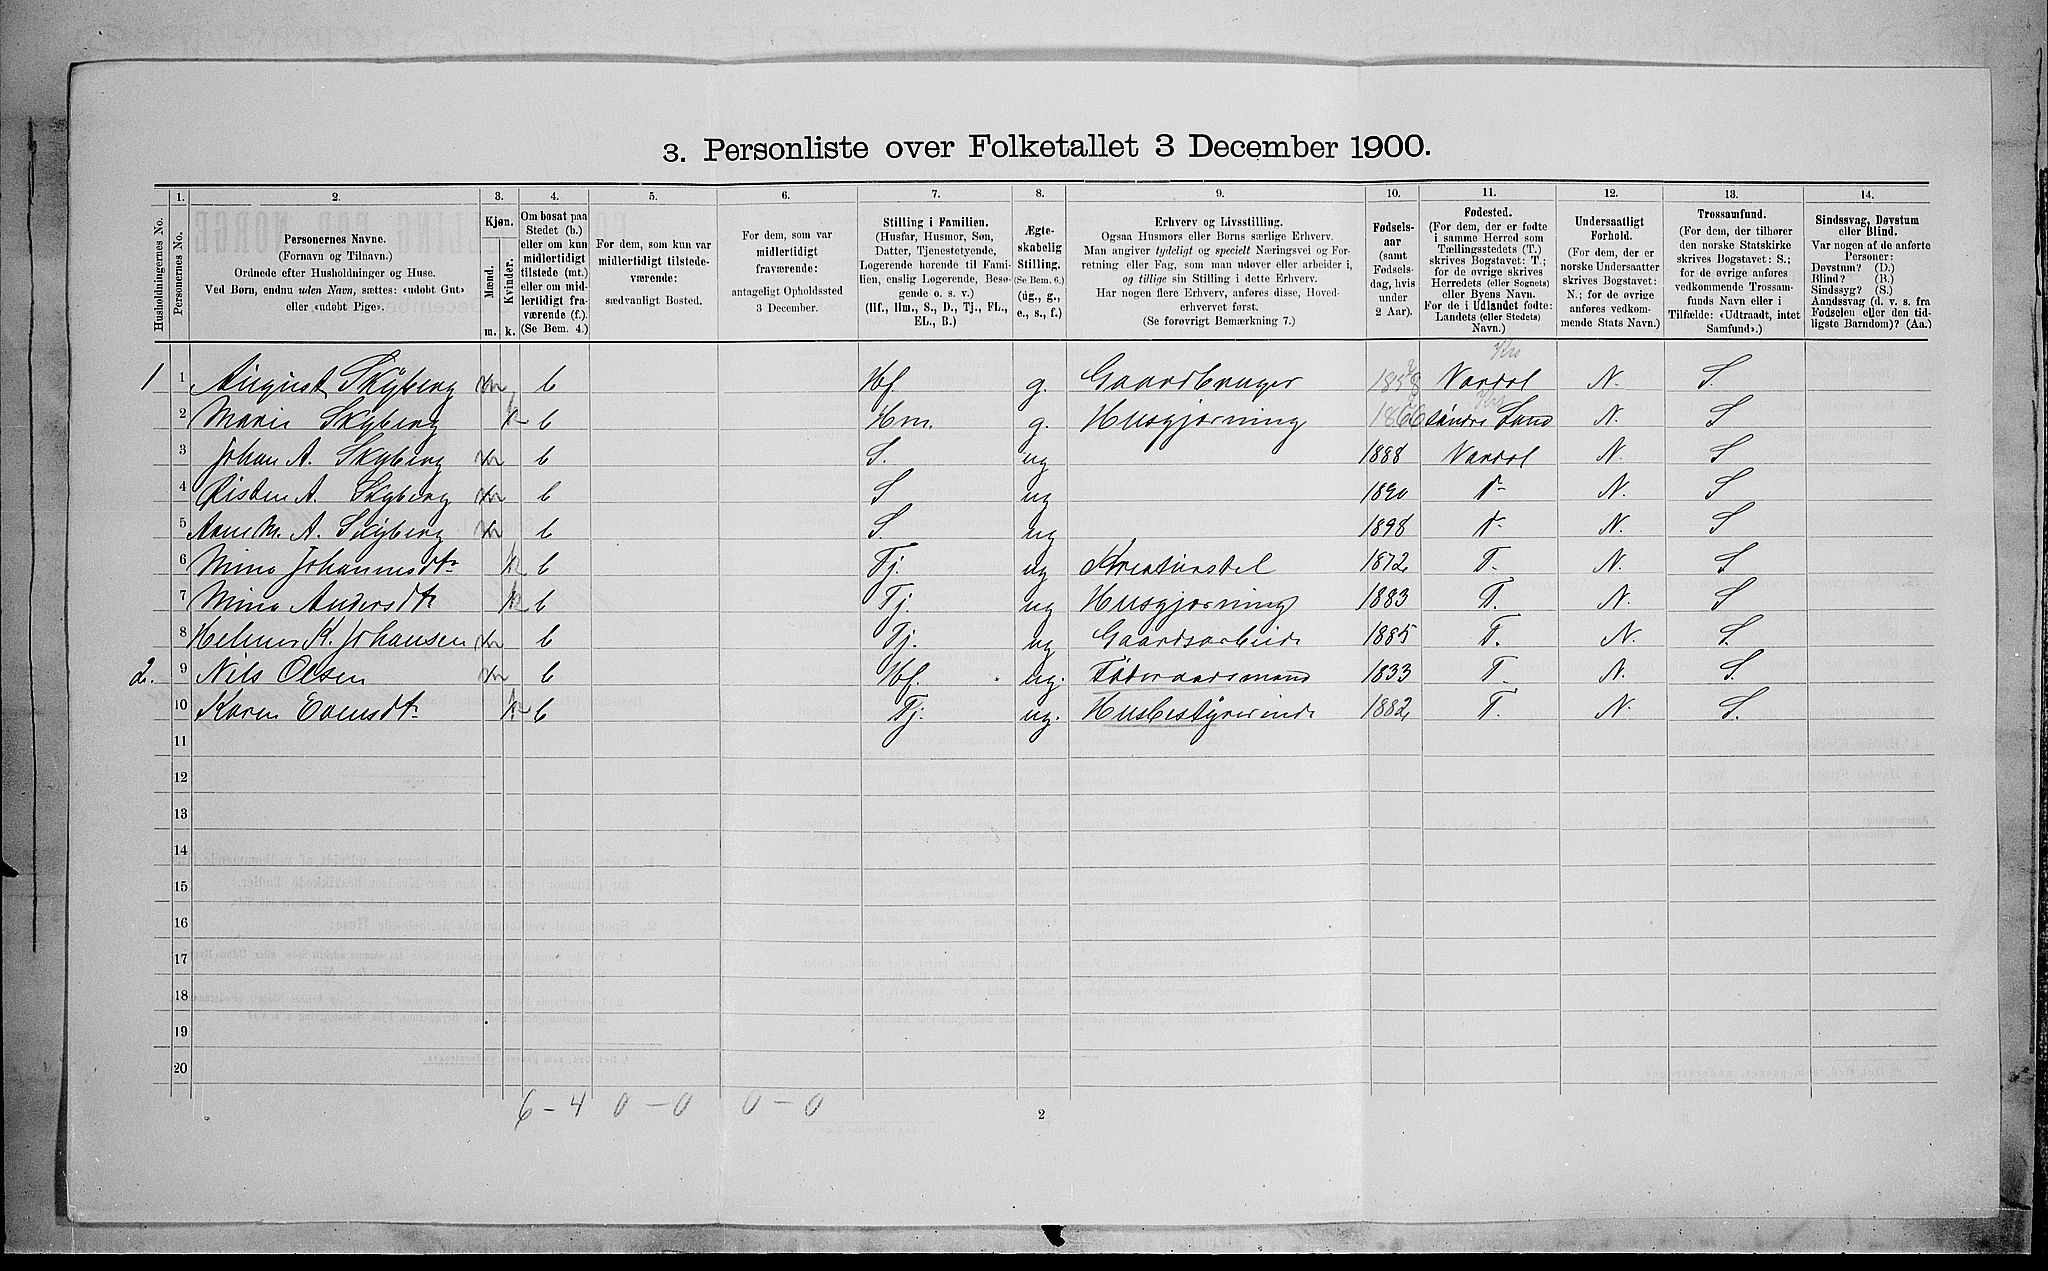 3. Personliste over Folketallet 3 December 1900.
Husholdningernes No.
1.
Personernes No.
2.
Personernes Navne.
(Fornavn og Tilnavn.)
Ordnede efter Husholdninger og Huse.
Ved Børn, endnu uden Navn, sættes: «udøbt Gut»
eller «udøbt Pige».
3.
Kjøn.
Mænd.
Kvinder.
m.
k.
4.
Om bosat paa
Stedet (b.)
eller om kun
midlertidigt
tilstede (mt.)
eller om mid-
lertidigt fra-
værende (f.).
(Se Bem. 4.)
5.
For dem, som kun var
midlertidigt tilstede-
værende:
sædvanligt Bosted.
6.
For dem, som var
midlertidigt
fraværende:
antageligt Opholdssted
3 December.
7.
Stilling i Familien.
(Husfar, Husmor, Søn,
Datter, Tjenestetyende,
Logerende hørende til Fami-
lien, enslig Logerende, Besø-
gende o. s. v.)
(Hf., Hm., S., D., Tj., FL.,
EL., B.)
8.
Ægte-
skabelig
Stilling.
(Se Bem. 6.)
(ug., g.,
e., s., f.)
9.
Erhverv og Livsstilling.
Ogsaa Husmors eller Børns særlige Erhverv.
Man angiver tydeligt og specielt Næringsvei og For-
retning eller Fag, som man udøver eller arbeider i,
og tillige sin Stilling i dette Erhverv.
Har nogen flere Erhverv, anføres disse, Hoved-
erhvervet først.
(Se forøvrigt Bemærkning 7.)
10.
Fødsels-
aar
(samt
Fødsels-
dag, hvis
under
2 Aar).
11.
Fødested.
(For dem, der er fødte
i samme Herred som
Tællingsstedets (T.)
skrives Bogstavet: T.;
for de øvrige skrives
Herredets (eller Sognets)
eller Byens Navn.
For de i Udlandet fødte:
Landets (eller Stedets)
Navn.)
12.
Undersaatligt
Forhold.
(For dem, der er
norske Undersaatter
skrives Bogstavet:
N.; for de øvrige
anføres vedkom-
mende Stats Navn.)
13.
Trossamfund.
(For dem, der tilhører
den norske Statskirke
skrives Bogstavet: S.;
for de øvrige anføres
vedkommende Trossam-
funds Navn eller i
Tilfælde: «Udtraadt, intet
Samfund».)
14.
Sindssvag, Døvstum
eller Blind.
Var nogen af de anførte
Personer:
Døvstum? (D.)
Blind? (B.)
Sindssyg? (S.)
Aandssvag (d. v. s. fra
Fødselen eller den tid-
ligste Barndom)? (Aa.)
Krs
1 1 August Skyberg m b Hf. g. Gaardbruger 1858 Vardal N. S.
Krs
2 Marie Skyberg k b Hm. g. Husgjerning 1866 Søndre Land N. S
3 Johan A. Skyberg m b S. ug 1888 Vardal N. S
4 Kristian A. Skyberg m b S ug 1890 N. S
5 Anne M. A. Skyberg m b S. ug 1898 N. S
6 Mina Johannesdtr k b Tj. ug Kreaturstel 1872 T. N. S
7 Mina Andersdtr k b Tj. ug Husgjerning 1883 T. N. S
8 Helmer K. Johansen m b Tj. ug Gaardsarbeide 1885 T. N. S.
2. 9 Nils Olsen m b Hf. ug. Føderaadsmand 1833 T. N. S.
10 Karen Evensdtr k b Tj. ug. Husbestyrerinde 1882 T. N. S.
11
12
13
14
15
16
17
18
19
20
6 - 4 0 - 0 0 - 0
2